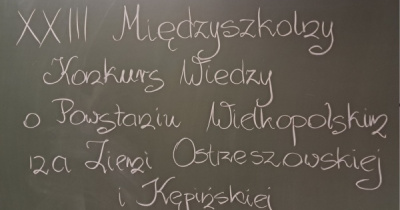 XXIII Międzyszkolny
Konkurs Wiedzy
o Powstaniu Wielkopolskim
na Ziemi Ostrzeszowskiej
i Kępińskiej